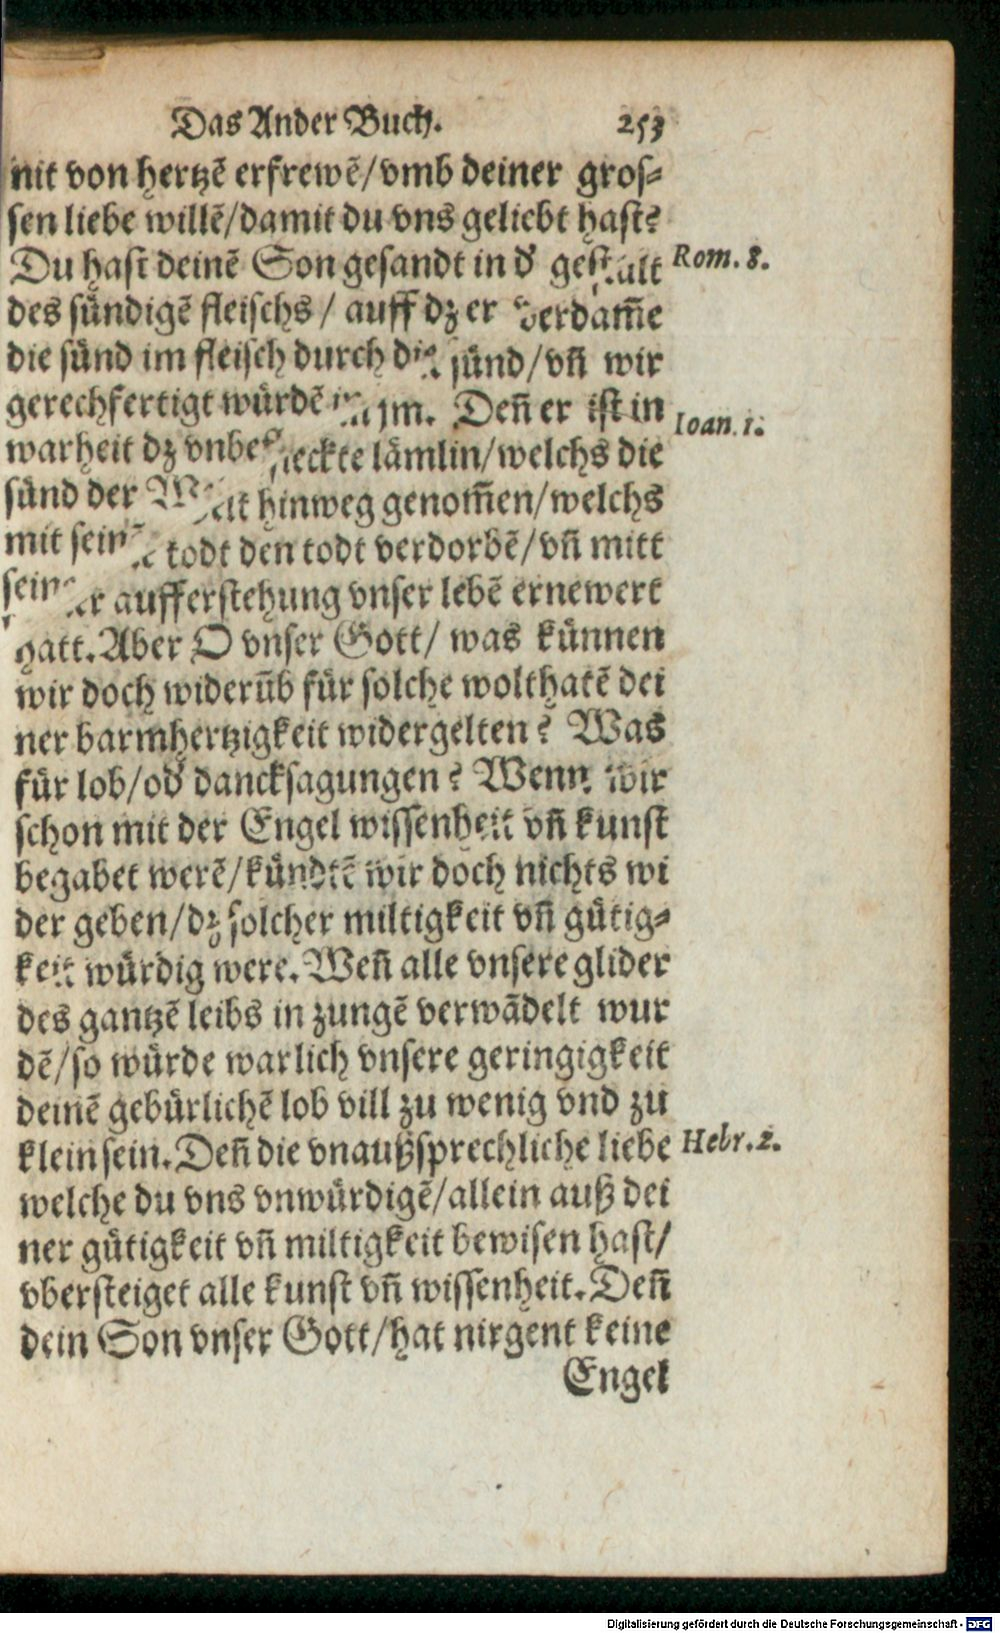 Das Ander Buch. 253
nit von hertzē erfrewē/vmb deiner gros-
sen liebe willē/damit du vns geliebt hast?
Du hast deinē Son gesandt in d' gestalt Rom. 8.
des sündigē fleischs/ auff dz er verdam̄e
die sünd im fleisch durch die sünd/vn̄ wir
gerechfertigt würdē in jm. Den̄ er ist in Ioan. 1.
warheit dz vnbefleckte lämlin/welchs die
sünd der Welt hinweg genom̄en/welchs
mit seinē todt den todt verdorbē/vn̄ mitt
seiner aufferstehung vnser lebē ernewert
hatt. Aber O vnser Gott/ was künnen
wir doch widerūb für solche wolthatē dei
ner barmhertzigkeit widergelten? Was
für lob/od' dancksagungen? Wenn wir
schon mit der Engel wissenheit vn̄ kunst
begabet werē/kündtē wir doch nichts wi
der geben/dz solcher miltigkeit vn̄ gütig-
keit würdig were. Wen̄ alle vnsere glider
des gantzē leibs in zungē verwādelt wur
dē/so würde warlich vnsere geringigkeit
deinē gebürlichē lob vill zu wenig vnd zu
klein sein. Den̄ die vnaußsprechliche liebe Hebr. 2.
welche du vns vnwürdigē/allein auß dei
ner gütigkeit vn̄ miltigkeit bewisen hast/
vbersteiget alle kunst vn̄ wissenheit. Den̄
dein Son vnser Gott/hat nirgent keine
Engel
Digitalisierung gefördert durch die Deutsche Forschungsgemeinschaft - DFG